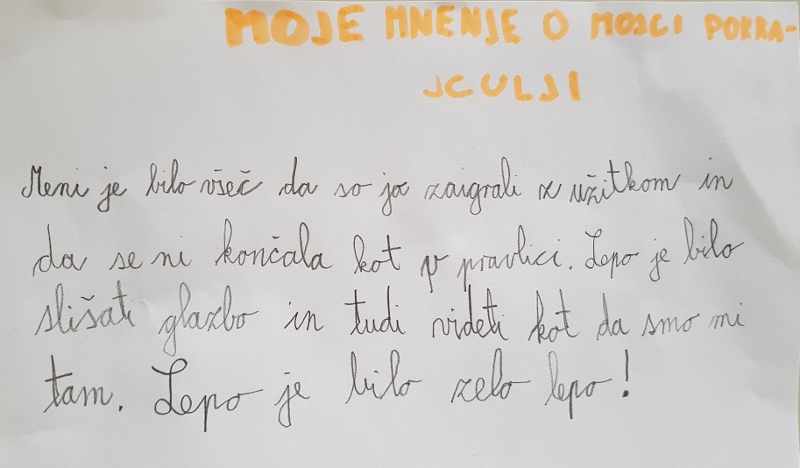 MOJE MNENJE O MOJCI POKRA-
JCULJI
Meni je bilo všeč da so jo zaigrali z užitkom in
da se ni končala kot v pravlici. Lepo je bilo
slišati glazbo in tudi videti kot da smo mi
tam. Lepo je bilo zelo lepo!